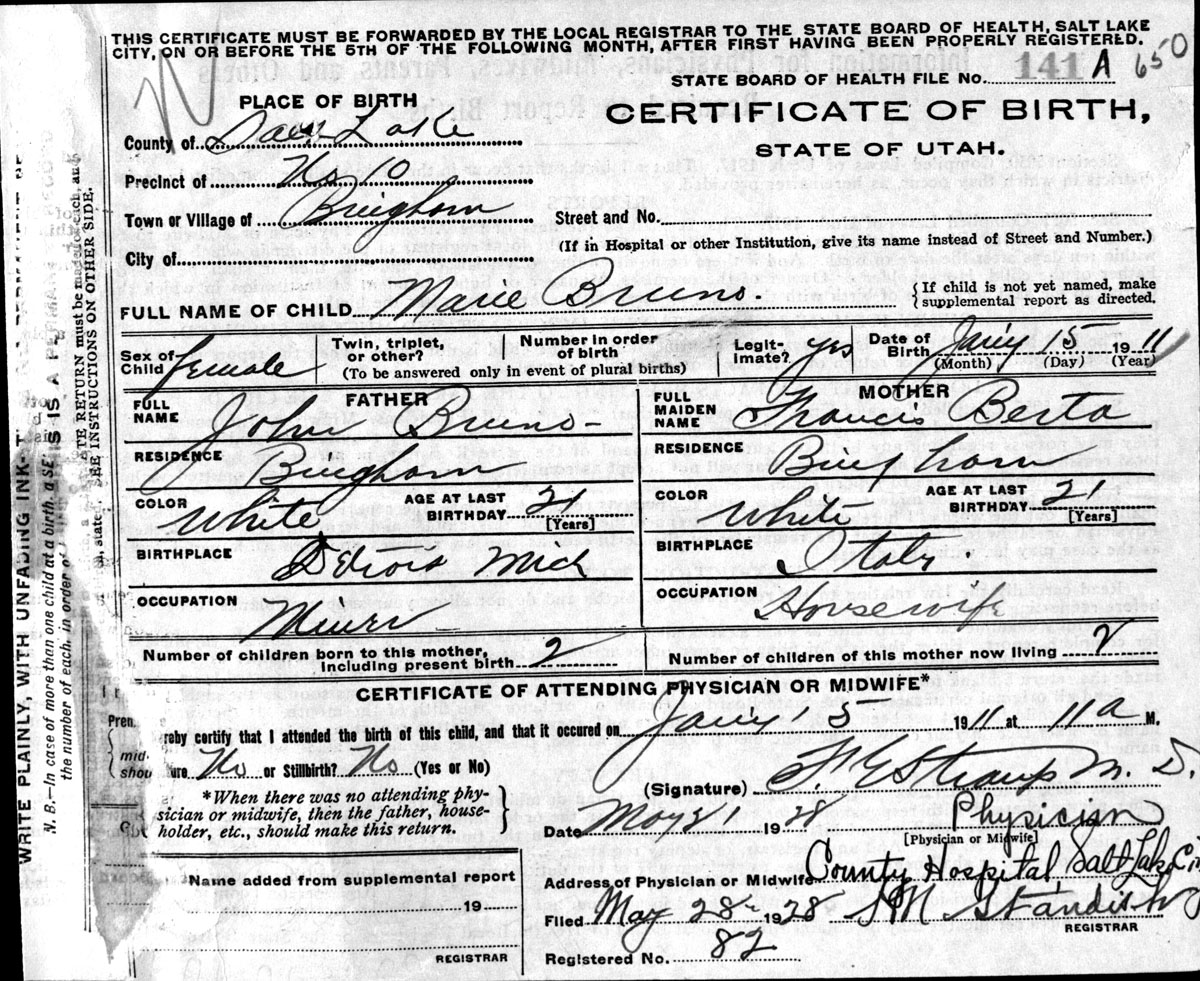 THIS CERTIFICATE MUST BE FORWARDED BY THE LOCAL REGISTRAR TO THE STATE BOARD OF HEALTH, SALT LAKE
CITY, ON OR BEFORE THE 5TH OF THE FOLLOWING MONTH, AFTER FIRST HAVING BEEN PROPERLY REGISTERED.
STATE BOARD OF HEALTH FILE No. 141 A 650
PLACE OF BIRTH
CERTIFICATE OF BIRTH,
STATE OF UTAH.
County of Salt Lake
Precinct of No 10
Town or Village of Bingham
Street and No.
(If in Hospital or other Institution, give its name instead of Street and Number.)
City of
FULL NAME OF CHILD Marie Bruno.
{If child is not yet named, make
supplemental report as directed.
Sex of Child female
Twin, triplet, or other?
Number in order of birth
(To be answered only in event of plural births)
Legitimate? yes
Date of Birth Jany 15 1911
(Month) (Day) (Year)
FATHER
FULL NAME John Bruno
RESIDENCE Bingham
COLOR White
AGE AT LAST BIRTHDAY 21
[Years]
BIRTHPLACE Detroit Mich
OCCUPATION Miner
MOTHER
FULL MAIDEN NAME Francis Berta
RESIDENCE Bingham
COLOR White
AGE AT LAST BIRTHDAY 21
[Years]
BIRTHPLACE Italy
OCCUPATION Housewife
Number of children born to this mother, including present birth 2
Number of children of this mother now living 2
CERTIFICATE OF ATTENDING PHYSICIAN OR MIDWIFE*
reby certify that I attended the birth of this child, and that it occured on Jany 15 1911 at 11 a M.
Pren
mid
shou
ure No or Stillbirth? No (Yes or No)
*When there was no attending physician or midwife, then the father, householder, etc., should make this return.
(Signature) F. E. Straup M. D.
Date May 21 1928 Physician
[Physician or Midwife]
Name added from supplemental report
19
REGISTRAR
Address of Physician or Midwife County Hospital Salt Lake City
Filed May 28 1928 Standish
REGISTRAR
Registered No. 82
WRITE PLAINLY, WITH UNFADING INK
IS IS A
N. B.—In case of more then one child at a birth, a SE
ATE RETURN must be made for each, and
the number of each, in order of
THE INSTRUCTIONS ON OTHER SIDE.